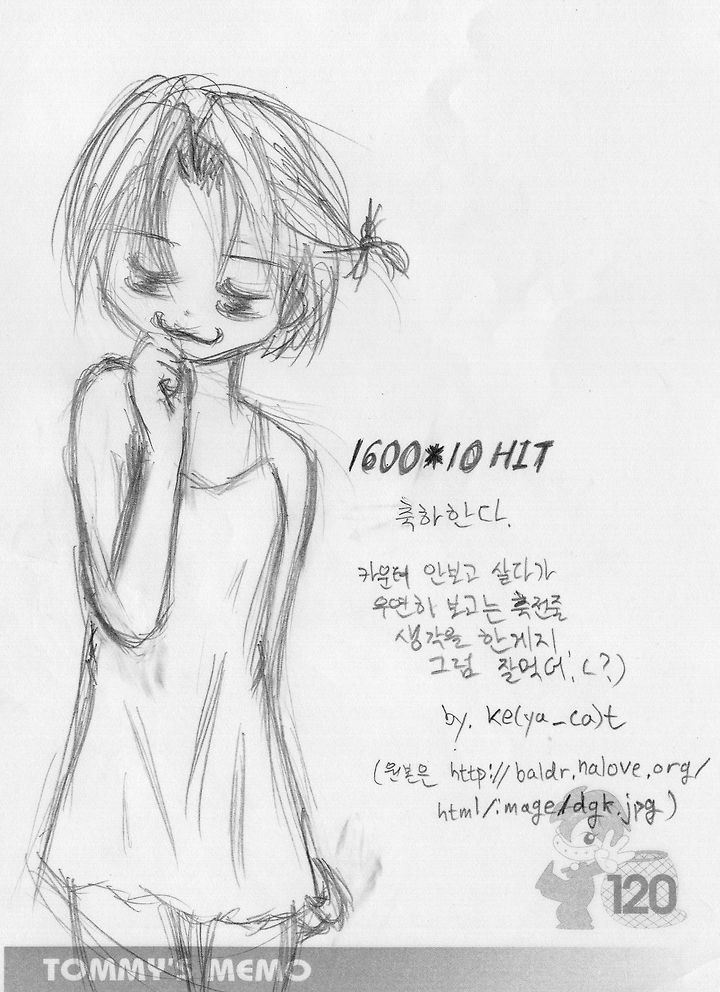 1600*10 HIT
축하한다.
카운터 안보고 살다가
우연하 보고는 축전줄
생각을 한게지
그럼 잘먹어! (?)
by. ke(ya_ca)t
(원본은 http://baldr.nalove.org/
html/image/dgk.jpg)
120
TOMMY'S MEMO